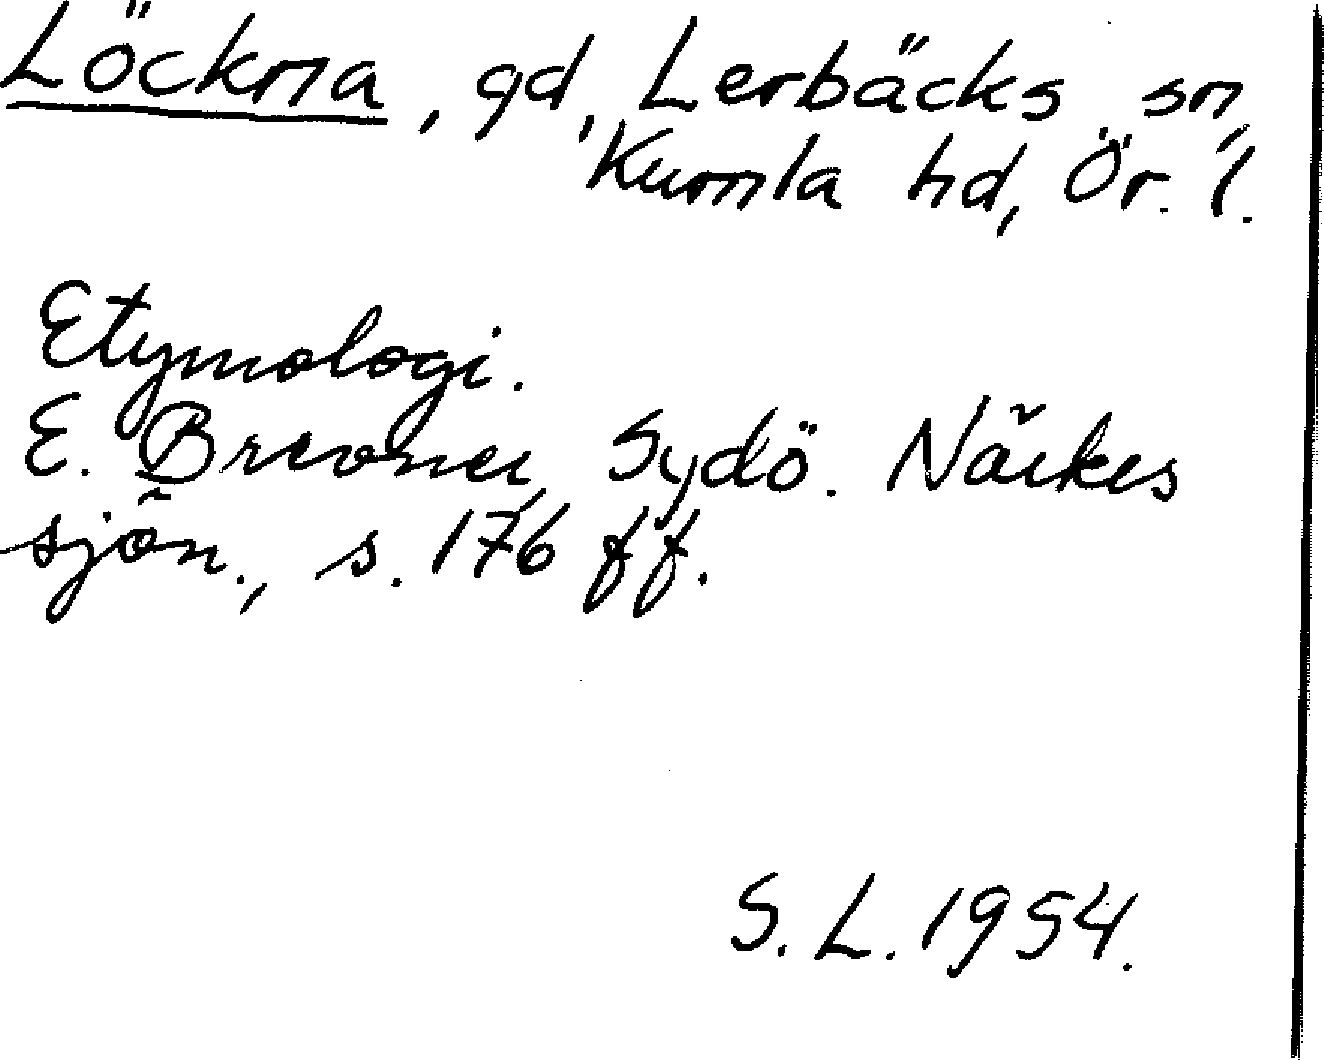 Löckna, gd, Lerbäcks sn,
Kumla hd, Ör. l.
Etymologi.
E. Brevner, Sydö. Närkes
sjön., s. 176 ff.
S. L. 1954.